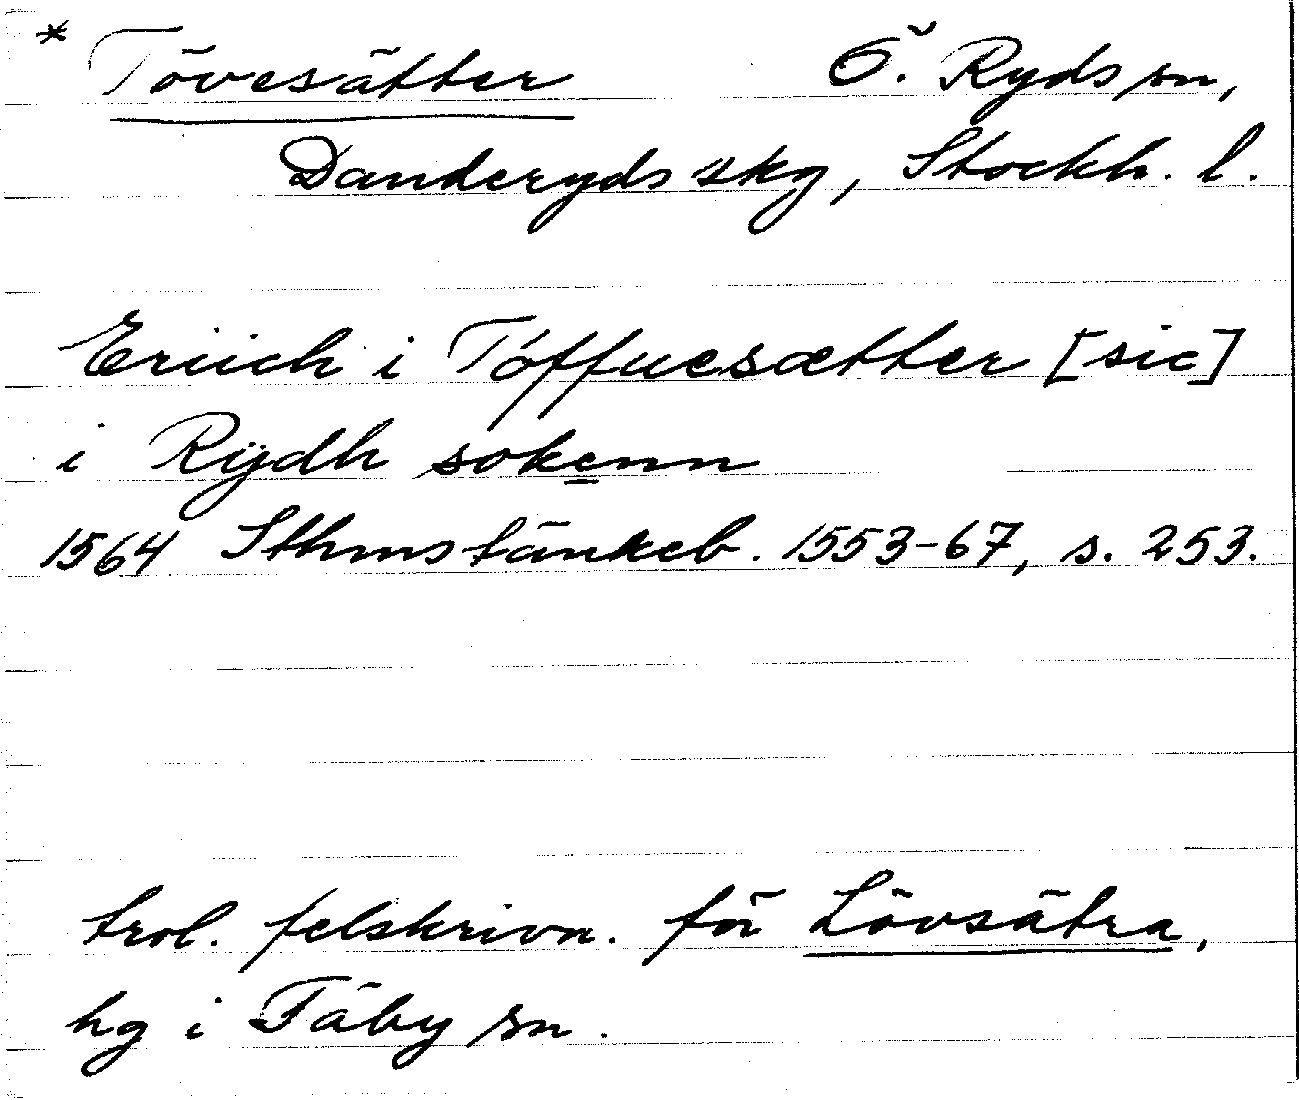 * Tövesätter Ö. Ryds sn,
Danderyds skg, Stockh. l.
Eriich i Töffuesætter [sic]
i Rÿdh sokenn
1564 Sthms tänkeb. 1553-67, s. 253.
trol. felskrivn. för Lövsätra,
hg i Täby sn.